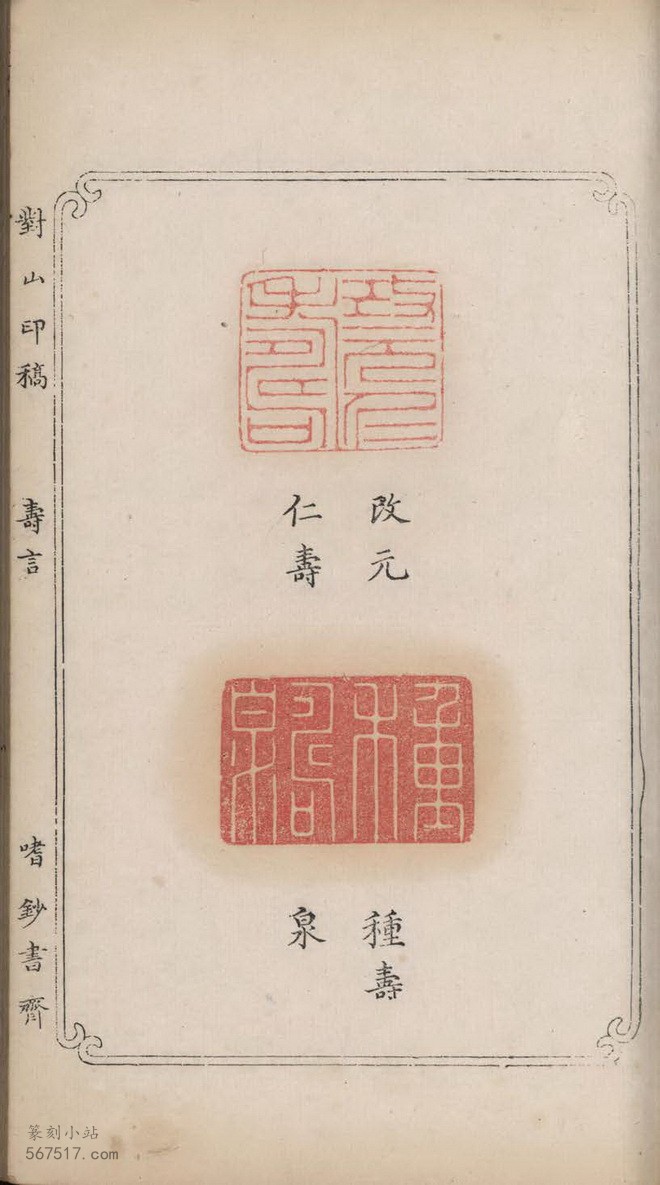 對山印稿
壽言
嗜鈔書齊
改元
仁壽
種壽
泉
篆刻小站
567517.com